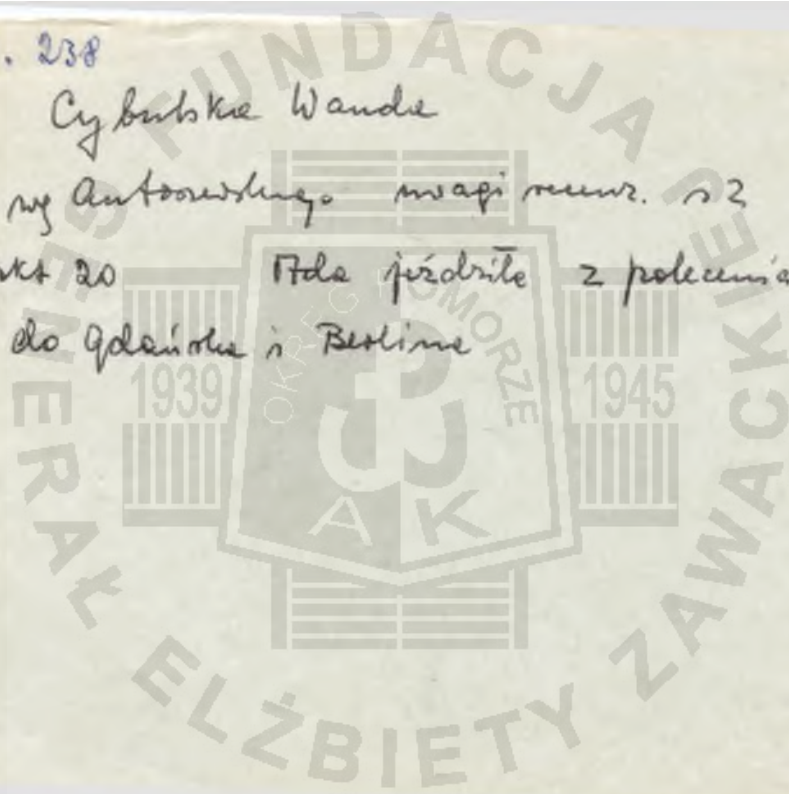 . 238
Cybulska Wanda
wg Antoszewskiego uwagi recenz. s 2
pkt 20 Ada jeździła z polecenia
do Gdańska i Berlina
FUNDACJA GENERAŁ ELŻBIETY ZAWACKIEJ
OKRĘG POMORZE
1939 1945
AK